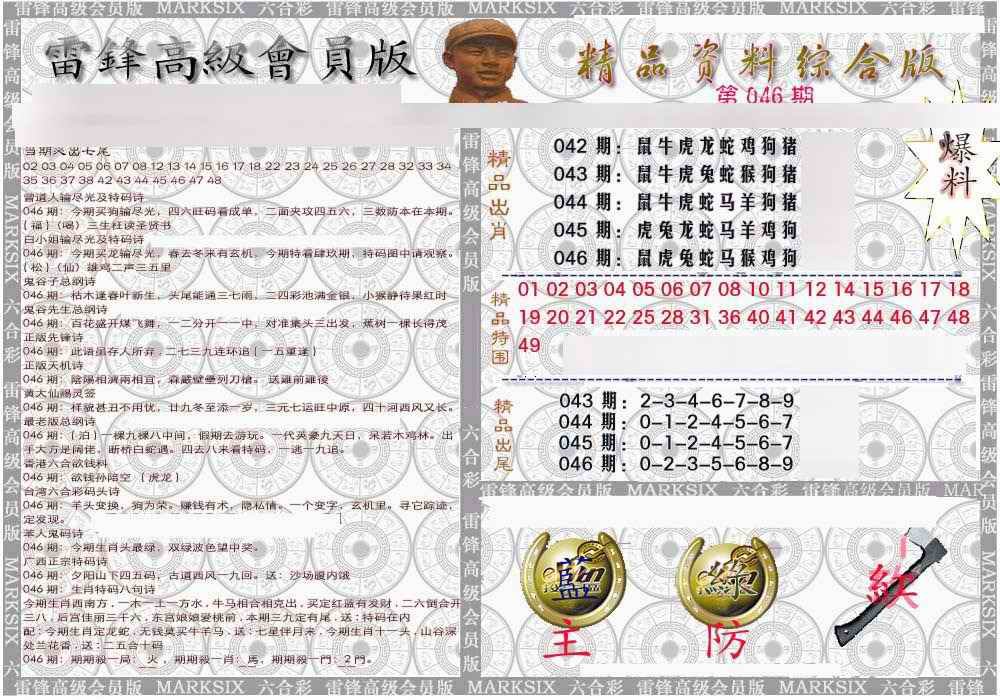 雷锋高级会员版 MARKSIX 六合彩 雷锋高级会员版 MARKSIX 六合彩 雷锋高级会员版 MARKSIX 六合彩
雷鋒高級會員版
精品资料综合版
第046期
当期灵出七尾
02 03 04 05 06 07 08 12 13 14 15 16 17 18 22 23 24 25 26 27 28 32 33 34
35 36 37 38 42 43 44 45 46 47 48
曾道人输尽光及特码诗
046 期: 今期买狗输尽光, 四六旺码看成单, 二面夹攻四五六, 三数防本在本期。
{福} (喝) 三生枉读圣贤书
白小姐输尽光及特码诗
046 期: 今期买龙输尽光, 春去冬来有玄机, 今期特看肆玖期, 特码图中请观察。
{松} (仙) 雄鸡二声三五里
鬼谷子总纲诗
046 期: 枯木逢春叶新生, 头尾能通三七雨, 二四彩池满金银, 小猴静待果红时
鬼谷先生总纲诗
046 期: 百花盛开煤飞舞, 一二分开一一中, 对准集头三出发, 蕉树一棵长得茂
正版先锋诗
046 期: 此语虽存人所弃, 二七三九连环追{一五重逢}
正版天机诗
046 期: 陰陽相濟兩相宜, 森嚴壁壘列刀槍。 送雞前雞後
黄大仙赐灵签
046 期: 样貌甚丑不用优, 廿九冬至添一岁, 三元七运旺中原, 四十河西风又长。
最老版总纲诗
046 期: {泊}一棵九棵八中间, 假期去游玩。一代英豪九天日, 呆若木鸡林。出
手大方是阔佬。断桥白蛇遇。四去八来看特码, 一逃一九追。
香港六合欲钱料
046 期: 欲钱孙陪空 {虎龙}
台湾六合彩码头诗
046 期: 羊头变换, 狗为荣。赚钱有术, 隐私情。一个变字, 玄机里。寻它踪迹,
定发现。
苯人鬼码诗
046 期: 今期生肖头最绿, 双绿波色望中奖。
广西正宗特码诗
046 期: 夕阳山下四五码, 古道西风一九回。送: 沙场腹内饿
046 期: 生肖特码八句诗
今期生肖西南方, 一木一土一方水, 牛马相合相克出, 买定红蓝有发财, 二六倒合开
三八, 后宫佳丽三千六, 东宫娘娘爱桃前, 本期三九定有尾, 送: 特码在内
配: 今期生肖定龙蛇, 无钱莫买牛羊马, 送: 七星伴月来, 今期生肖十一头, 山谷深
处兰花香, 送: 二五合十码
046 期: 期期殺一局: 火, 期期殺一肖: 馬, 期期殺一門: 2門。
精品出肖
042 期: 鼠牛虎龙蛇鸡狗猪
043 期: 鼠牛虎兔蛇猴狗猪
044 期: 鼠牛虎蛇马羊狗猪
045 期: 虎兔龙蛇马羊鸡狗
046 期: 鼠虎兔蛇马猴鸡狗
爆料
精品特围
01 02 03 04 05 06 07 08 10 11 12 14 15 16 17 18
19 20 21 22 25 28 31 36 40 41 42 43 44 46 47 48
49
精品出尾
043 期: 2-3-4-6-7-8-9
044 期: 0-1-2-4-5-6-7
045 期: 0-1-2-4-5-6-7
046 期: 0-2-3-5-6-8-9
雷锋高级会员版 MARKSIX 六合彩 雷锋高级会员版 MARKSIX
藍
主
綠
防
欸
雷锋高级会员版 MARKSIX 六合彩 雷锋高级会员版 MARKSIX 六合彩 雷锋高级会员版 MARKSIX 六合彩